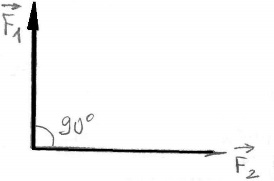 F⃗1
90°
F⃗2